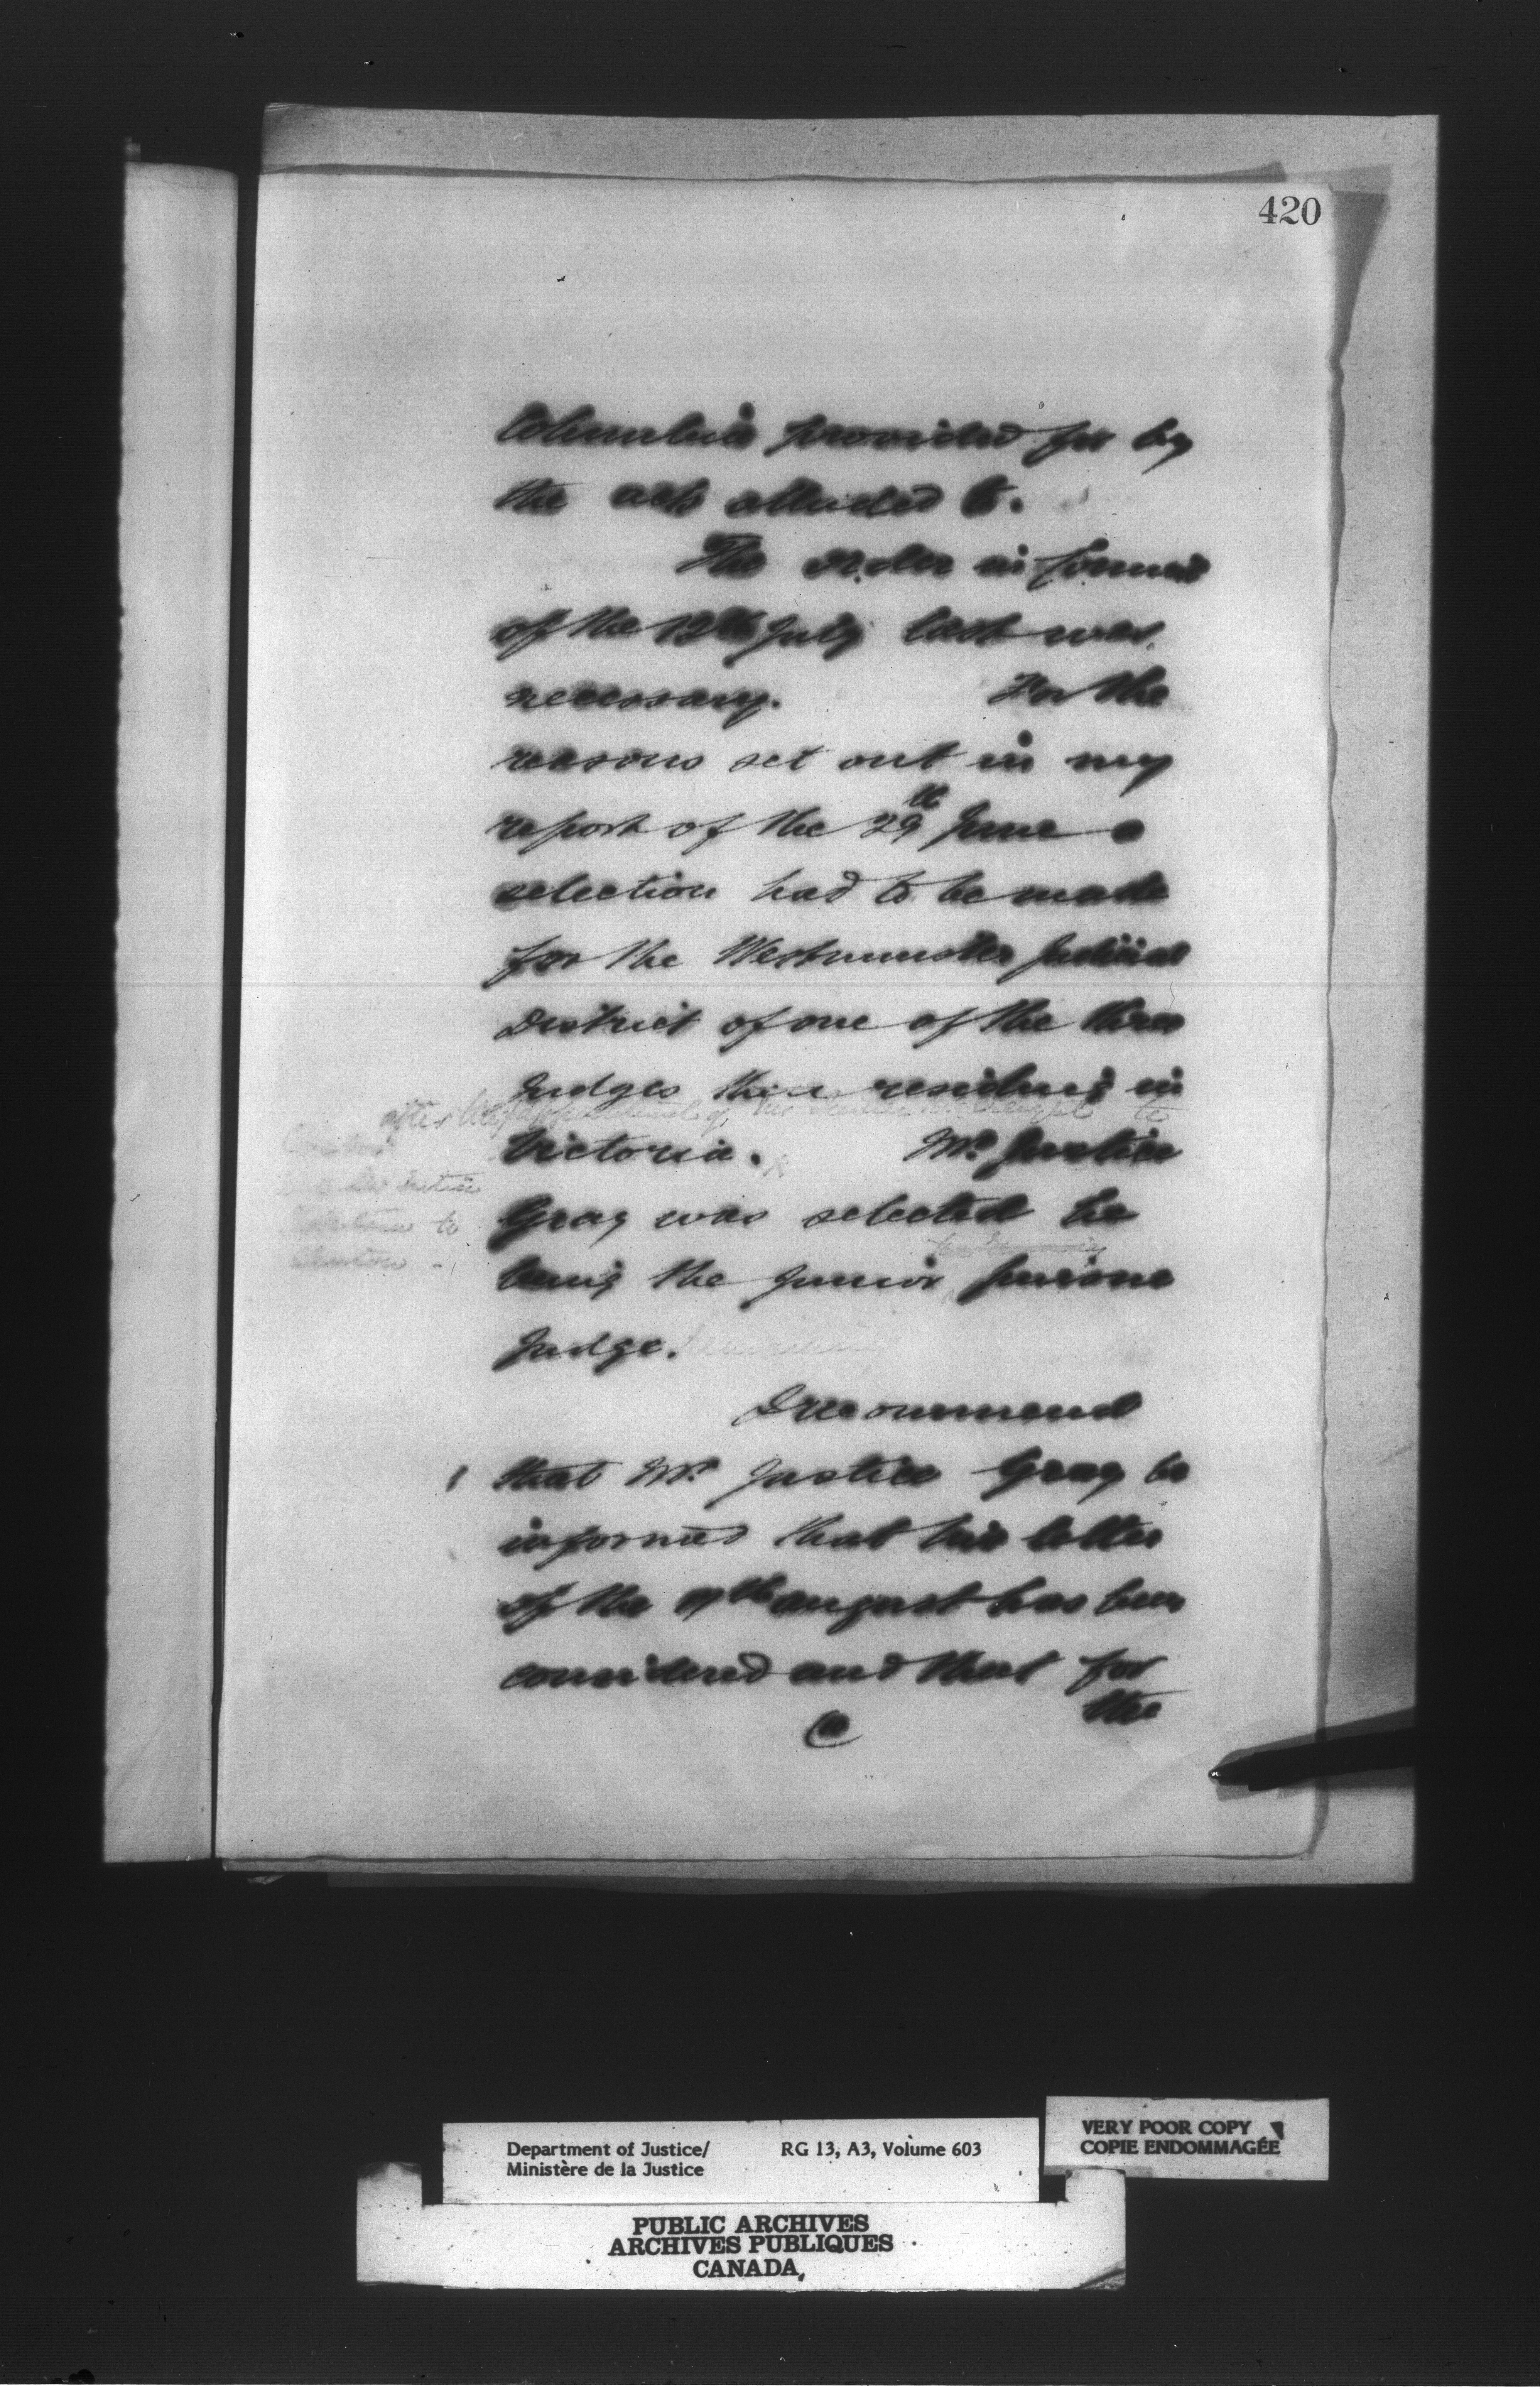 420
Columbia provided for by
the acts alluded to.
The order in Council
of the 12th July last was
necessary. For the
reasons set out in my
report of the 29th June a
selection had to be made
for the Westminster Judicial
District of one of the three
Judges then resident in
after the appointment of Mr to
Victoria. Mr. Justice
to
Gray was selected he
being the junior puisne
Judge.
I recommend
that Mr. Justice Gray be
informed that his letter
of the 17th august has been
considered and that for
the
Department of Justice/ RG 13, A3, Volume 603
Ministère de la Justice
VERY POOR COPY
COPIE ENDOMMAGÉE
PUBLIC ARCHIVES
ARCHIVES PUBLIQUES
CANADA